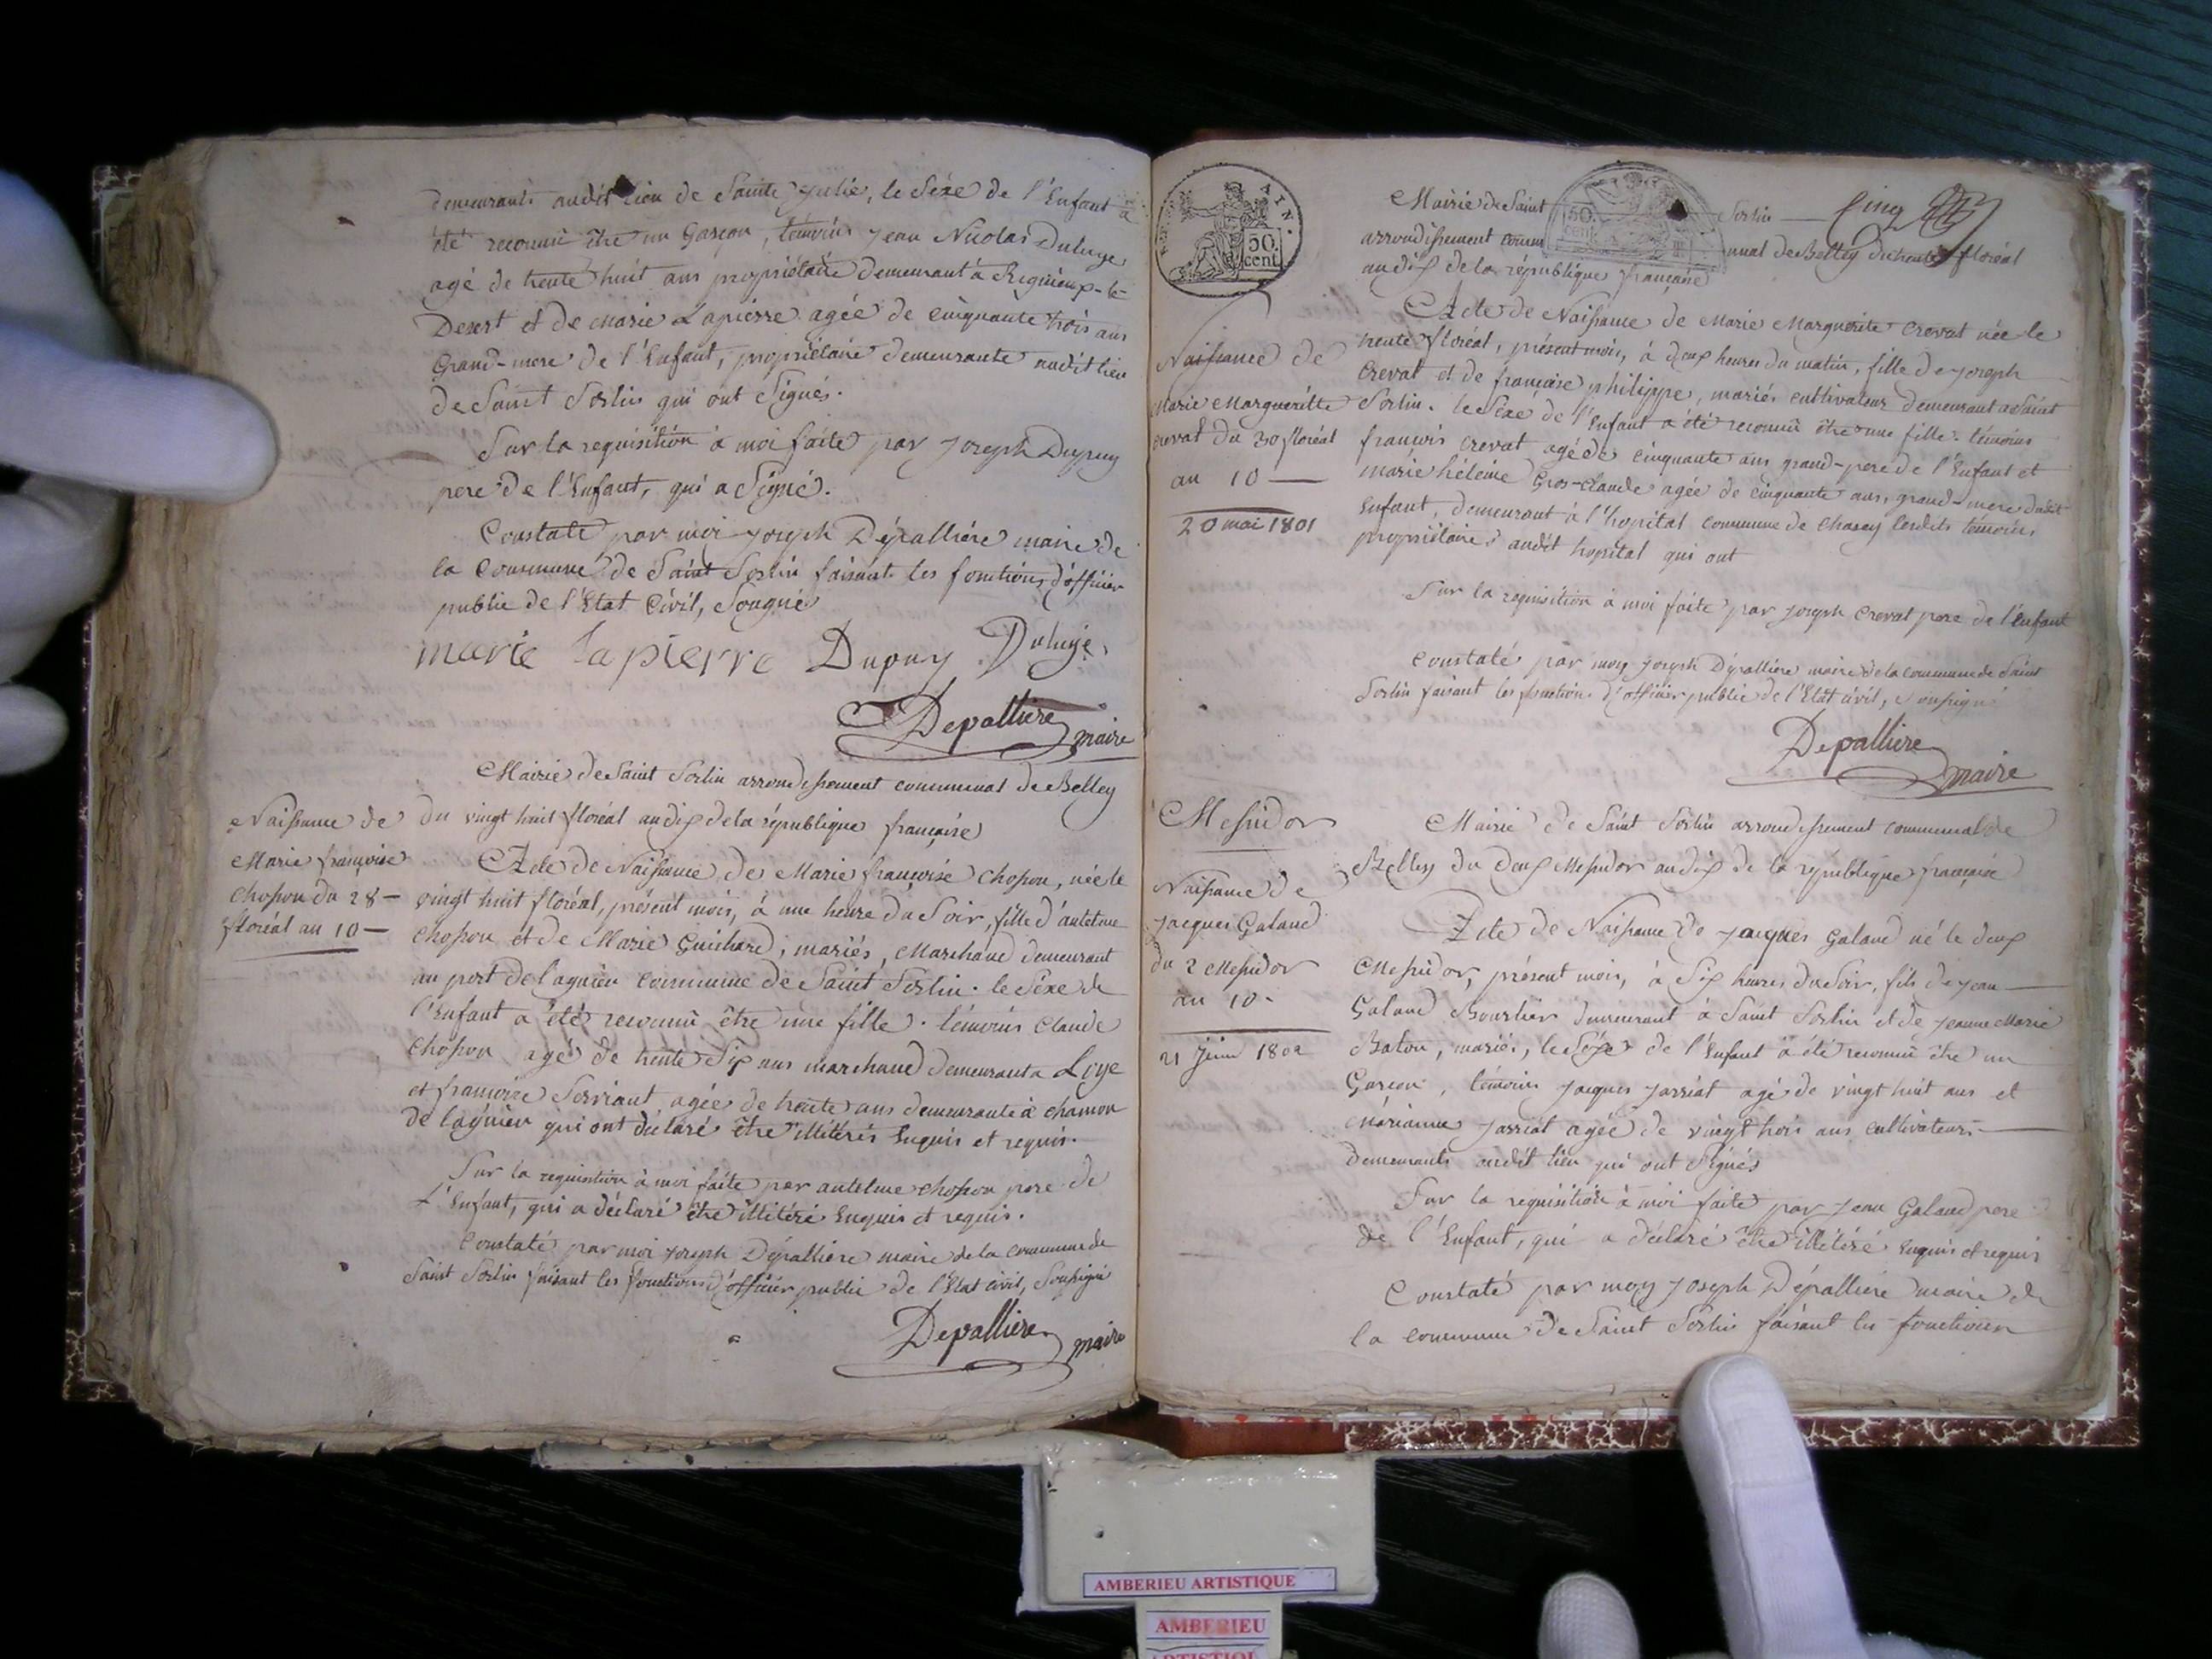 demeurants audit lieu de Sainte Julie, le Séxe de l'Enfant a
été reconnû être un Garçon, témoins Jean Nicolas Duluye
agé de trente huit ans propriétaire demeurant à Rignieux-le-
Desert et de Marie Lapierre agée de cinquante trois ans
Grand-mere de l'Enfant, propriétaire demeurante audit lieu
de Saint Sorlin qui ont Signés.
Sur la requisition à moi faite par Joseph Dupuy
pere de l'Enfant, qui a Signé.
Constaté par moi Joseph Dépallière maire de
la Commune de Saint Sorlin faisant les fonctions d'officier
public de l'Etat Civil, Sousigné
marie lapierre Dupuy Duluye
Depalliere maire
Mairie de Saint Sorlin arrondissement communal de Belley
du vingt huit floréal an dix de la république française
Naissance de
Marie françoise
Chosson du 28 —
floréal an 10 —
Acte de Naissance de Marie françoise Chosson, née le
vingt huit floréal, présent mois, à une heure du Soir, fille d'antelme
Chosson et de Marie Guichard, mariés, Marchand demeurant
au port de lagnieu commune de Saint Sorlin. le Séxe de
l'Enfant a été reconnû être une fille. témoins Claude
Chosson agé de trente Six ans marchand demeurant a Loye
et françoise Servant agée de trente ans demeurante à
de lagnieu qui ont déclaré être illitérés Enquis et requis.
Sur la requisition à moi faite par antelme Chosson pere de
L'Enfant, qui a déclaré être illitéré Enquis et requis.
Constaté par moi Joseph Dépallière maire de la commune de
Saint Sorlin faisant les fonctions d'officier public de l'Etat civil, Soussigné
Depalliere maire
AIN.
50. cent.
50. cent.
Mairie de Saint Sorlin — Cinq
arrondissement communal de Belley du trente floréal
an dix de la république française
Naissance de
Marie Marguerite
Crevat du 30 floréal
an 10 —
20 mai 1801
Acte de Naissance de Marie Marguerite Crevat née le
trente floréal, présent mois, à deux heures du matin, fille de Joseph
Crevat et de françoise philippe, mariés cultivateur demeurant a Saint
Sorlin. le Séxe de l'Enfant a été reconnû être une fille. témoins
françois Crevat agé de cinquante ans grand-pere de l'Enfant et
marie héleine Gros-Claude agée de cinquante ans, grand-mere dudit
Enfant, demeurant à l'hopital commune de Chazey lesdits témoins
propriétaires audit hopital qui ont
Sur la requisition à moi faite par Joseph Crevat pere de l'enfant
Constaté par moy Joseph Dépallière maire de la commune de Saint
Sorlin faisant les fonctions d'officier public de l'Etat civil, Soussigné
Depalliere maire
Messidor
Mairie de Saint Sorlin arrondissement communal de
Belley du deux Messidor an dix de la république française
Naissance de
Jacques Galand
du 2 Messidor
an 10 -
21 Juin 1802
Acte de Naissance de Jacques Galand né le deux
Messidor, présent mois, à Six heures du Soir, fils de Jean —
Galand Bourlier demeurant à Saint Sorlin et de Jeanne Marie
Baton, mariés, le Séxe de l'Enfant a été reconnû être un
Garçon, témoins Jacques Jarriat agé de vingt huit ans et
Marianne Jarriat agée de vingt trois ans cultivateurs —
demeurants audit lieu qui ont Signés
Sur la requisition à moi faite par Jean Galand pere
de l'Enfant, qui a déclaré être illitéré enquis et requis
Constaté par moy Joseph Dépallière maire de
la commune de Saint Sorlin faisant les fonctions
AMBERIEU ARTISTIQUE
AMBERIEU
ARTISTIQUE